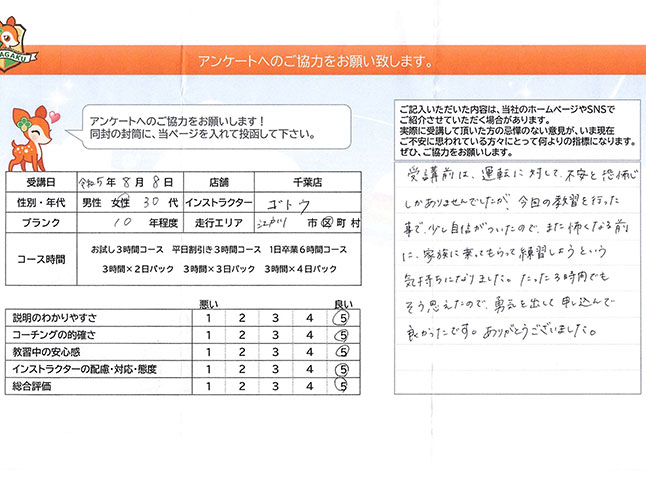 AGAKU
アンケートへのご協力をお願い致します。
アンケートへのご協力をお願いします！
同封の封筒に、当ページを入れて投函して下さい。
ご記入いただいた内容は、当社のホームページやSNSで
ご紹介させていただく場合があります。
実際に受講して頂いた方の忌憚のない意見が、いま現在
ご不安に思われている方々にとって何よりの指標になります。
ぜひ、ご協力をお願いします。
受講日 令和5年 8月 8日 店舗 千葉店
性別・年代 男性 女性 30代 インストラクター ゴトウ
ブランク 10 年程度 走行エリア 江戸川 市 区 町 村
コース時間 お試し3時間コース 平日割引き3時間コース 1日卒業6時間コース
3時間×2日パック 3時間×3日パック 3時間×4日パック
悪い 良い
説明のわかりやすさ 1 2 3 4 5
コーチングの的確さ 1 2 3 4 5
教習中の安心感 1 2 3 4 5
インストラクターの配慮・対応・態度 1 2 3 4 5
総合評価 1 2 3 4 5
受講前は、運転に対して、不安と恐怖心
しかありませんでしたが、今回の教習を行った
事で、少し自信がついたので、また怖くなる前
に、家族に乗ってもらって練習しようという
気持ちになりました。たった3時間でも
そう思えたので、勇気を出して申し込んで
良かったです。ありがとうございました。